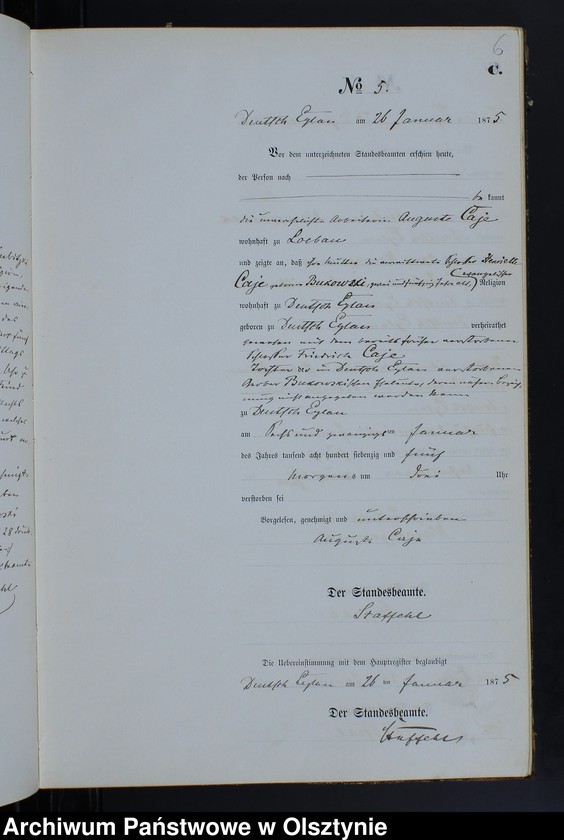 6
C.
No 5.
Deutsch Eylau am 26 Januar 1875
Vor dem unterzeichneten Standesbeamten erschien heute,
der Person nach
be kannt
die unverehelichte Arbeiterin Auguste Caje
wohnhaft zu Loebau
und zeigte an, daß ihre Mutter die verwittwete Schlosser Henriette
Caje geborne Bukowski, zwei und Jahr alt, evangelischer Religion
wohnhaft zu Deutsch Eylau
geboren zu Deutsch Eylau verheirathet
gewesen mit dem bereits früher verstorbenen
Schlosser Friedrich Caje
Tochter der in Deutsch Eylau verstorbenen
Gerber Bukowskischen Eheleute, deren nähere
nicht angegeben werden kann
zu Deutsch Eylau
am Sechs und zwanzigsten Januar
des Jahres tausend acht hundert siebenzig und fünf
Morgens um drei Uhr
verstorben sei
Vorgelesen, genehmigt und unterschrieben
Auguste Caje
Der Standesbeamte.
Staffehl
Die Uebereinstimmung mit dem Hauptregister beglaubigt
Deutsch Eylau am 26 ten Januar 1875
Der Standesbeamte.
Staffehl
Archiwum Państwowe w Olsztynie